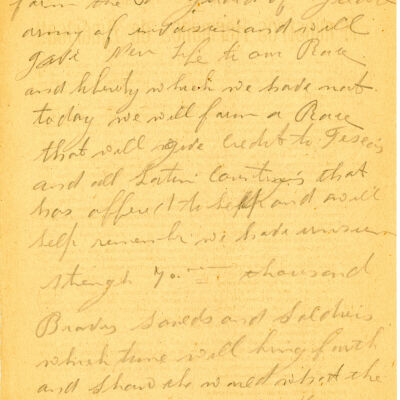 army of invasion and will
gave New Life to our Race
and liberty which we have not
today we will form a Race
that will give credit to Texas
and all Latin Countries that
has offered to help and will
help remember we have unseen
strength 70 thousand
Braves and Soldiers
which time will bring forth
and show the world what the